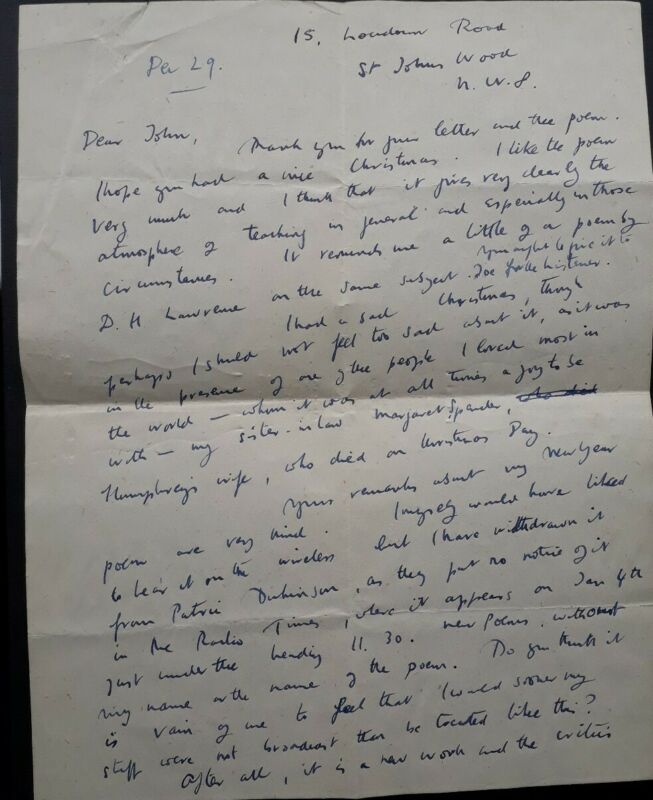 15, Loudoun Road
St Johns Wood
N.W.8.
Dec 29.
Dear John, Thank you for your letter and the poem.
I hope you had a nice Christmas. I like the poem
very much and I think that it gives very clearly the
atmosphere of teaching in general and especially in those
circumstances. It reminds me a little of a poem by
D. H Lawrence on the same subject. You might give it to
Joe for the Listener.
I had a sad Christmas, though
perhaps I should not feel too sad about it, as it was
in the presence of one of the people I loved most in
the world – whom it was at all times a joy to be
with – my sister-in-law Margaret Spender, who did
Humphrey's wife, who died on Christmas Day.
Your remarks about my New Year
poem are very kind. I myself would have liked
to hear it on the wireless but I have withdrawn it
from Patric Dickinson, as they put no notice of it
in the Radio Times, where it appears on Jan 4th
just under the heading 11.30. New Poems, without
my name or the name of the poem. Do you think it
is vain of me to feel that I would sooner my
stuff were not broadcast than be treated like this?
After all, it is a new work and the critics